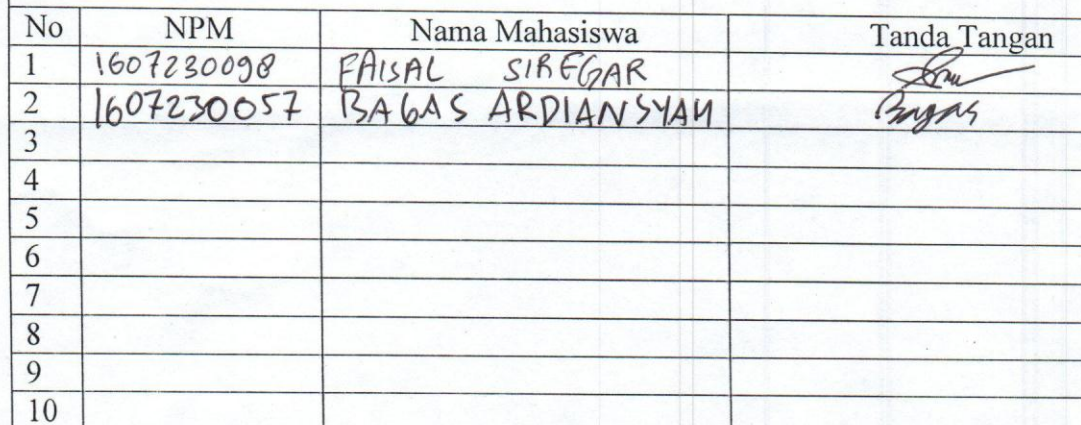 No NPM Nama Mahasiswa Tanda Tangan
1 1607230098 FAISAL SIREGAR
2 1607230057 BAGAS ARDIANSYAH Bagas
3
4
5
6
7
8
9
10